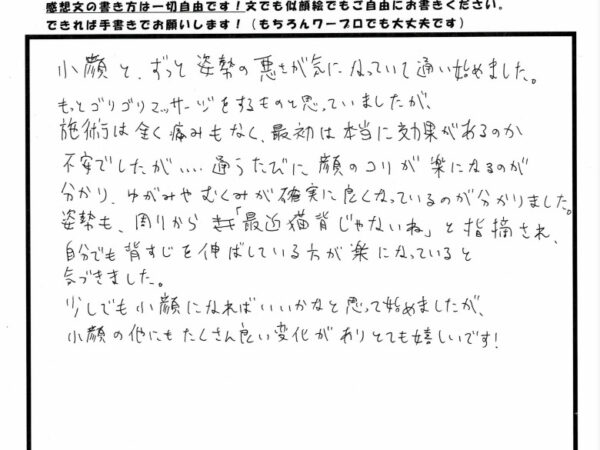 感想文の書き方は一切自由です！文でも似顔絵でもご自由にお書きください。
できれば手書きでお願いします！（もちろんワープロでも大丈夫です）
小顔と、ずっと姿勢の悪さが気になっていて通い始めました。
もっとゴリゴリマッサージをするものと思っていましたが、
施術は全く痛みもなく、最初は本当に効果があるのか
不安でしたが.....通うたびに顔のコリが楽になるのが
分かり、ゆがみやむくみが確実に良くなっているのが分かりました。
姿勢も、周りから「最近猫背じゃないね」と指摘され、
自分でも背すじを伸ばしている方が楽になっていると
気づきました。
少しでも小顔になればいいかなと思って始めましたが、
小顔の他にもたくさん良い変化がありとても嬉しいです！